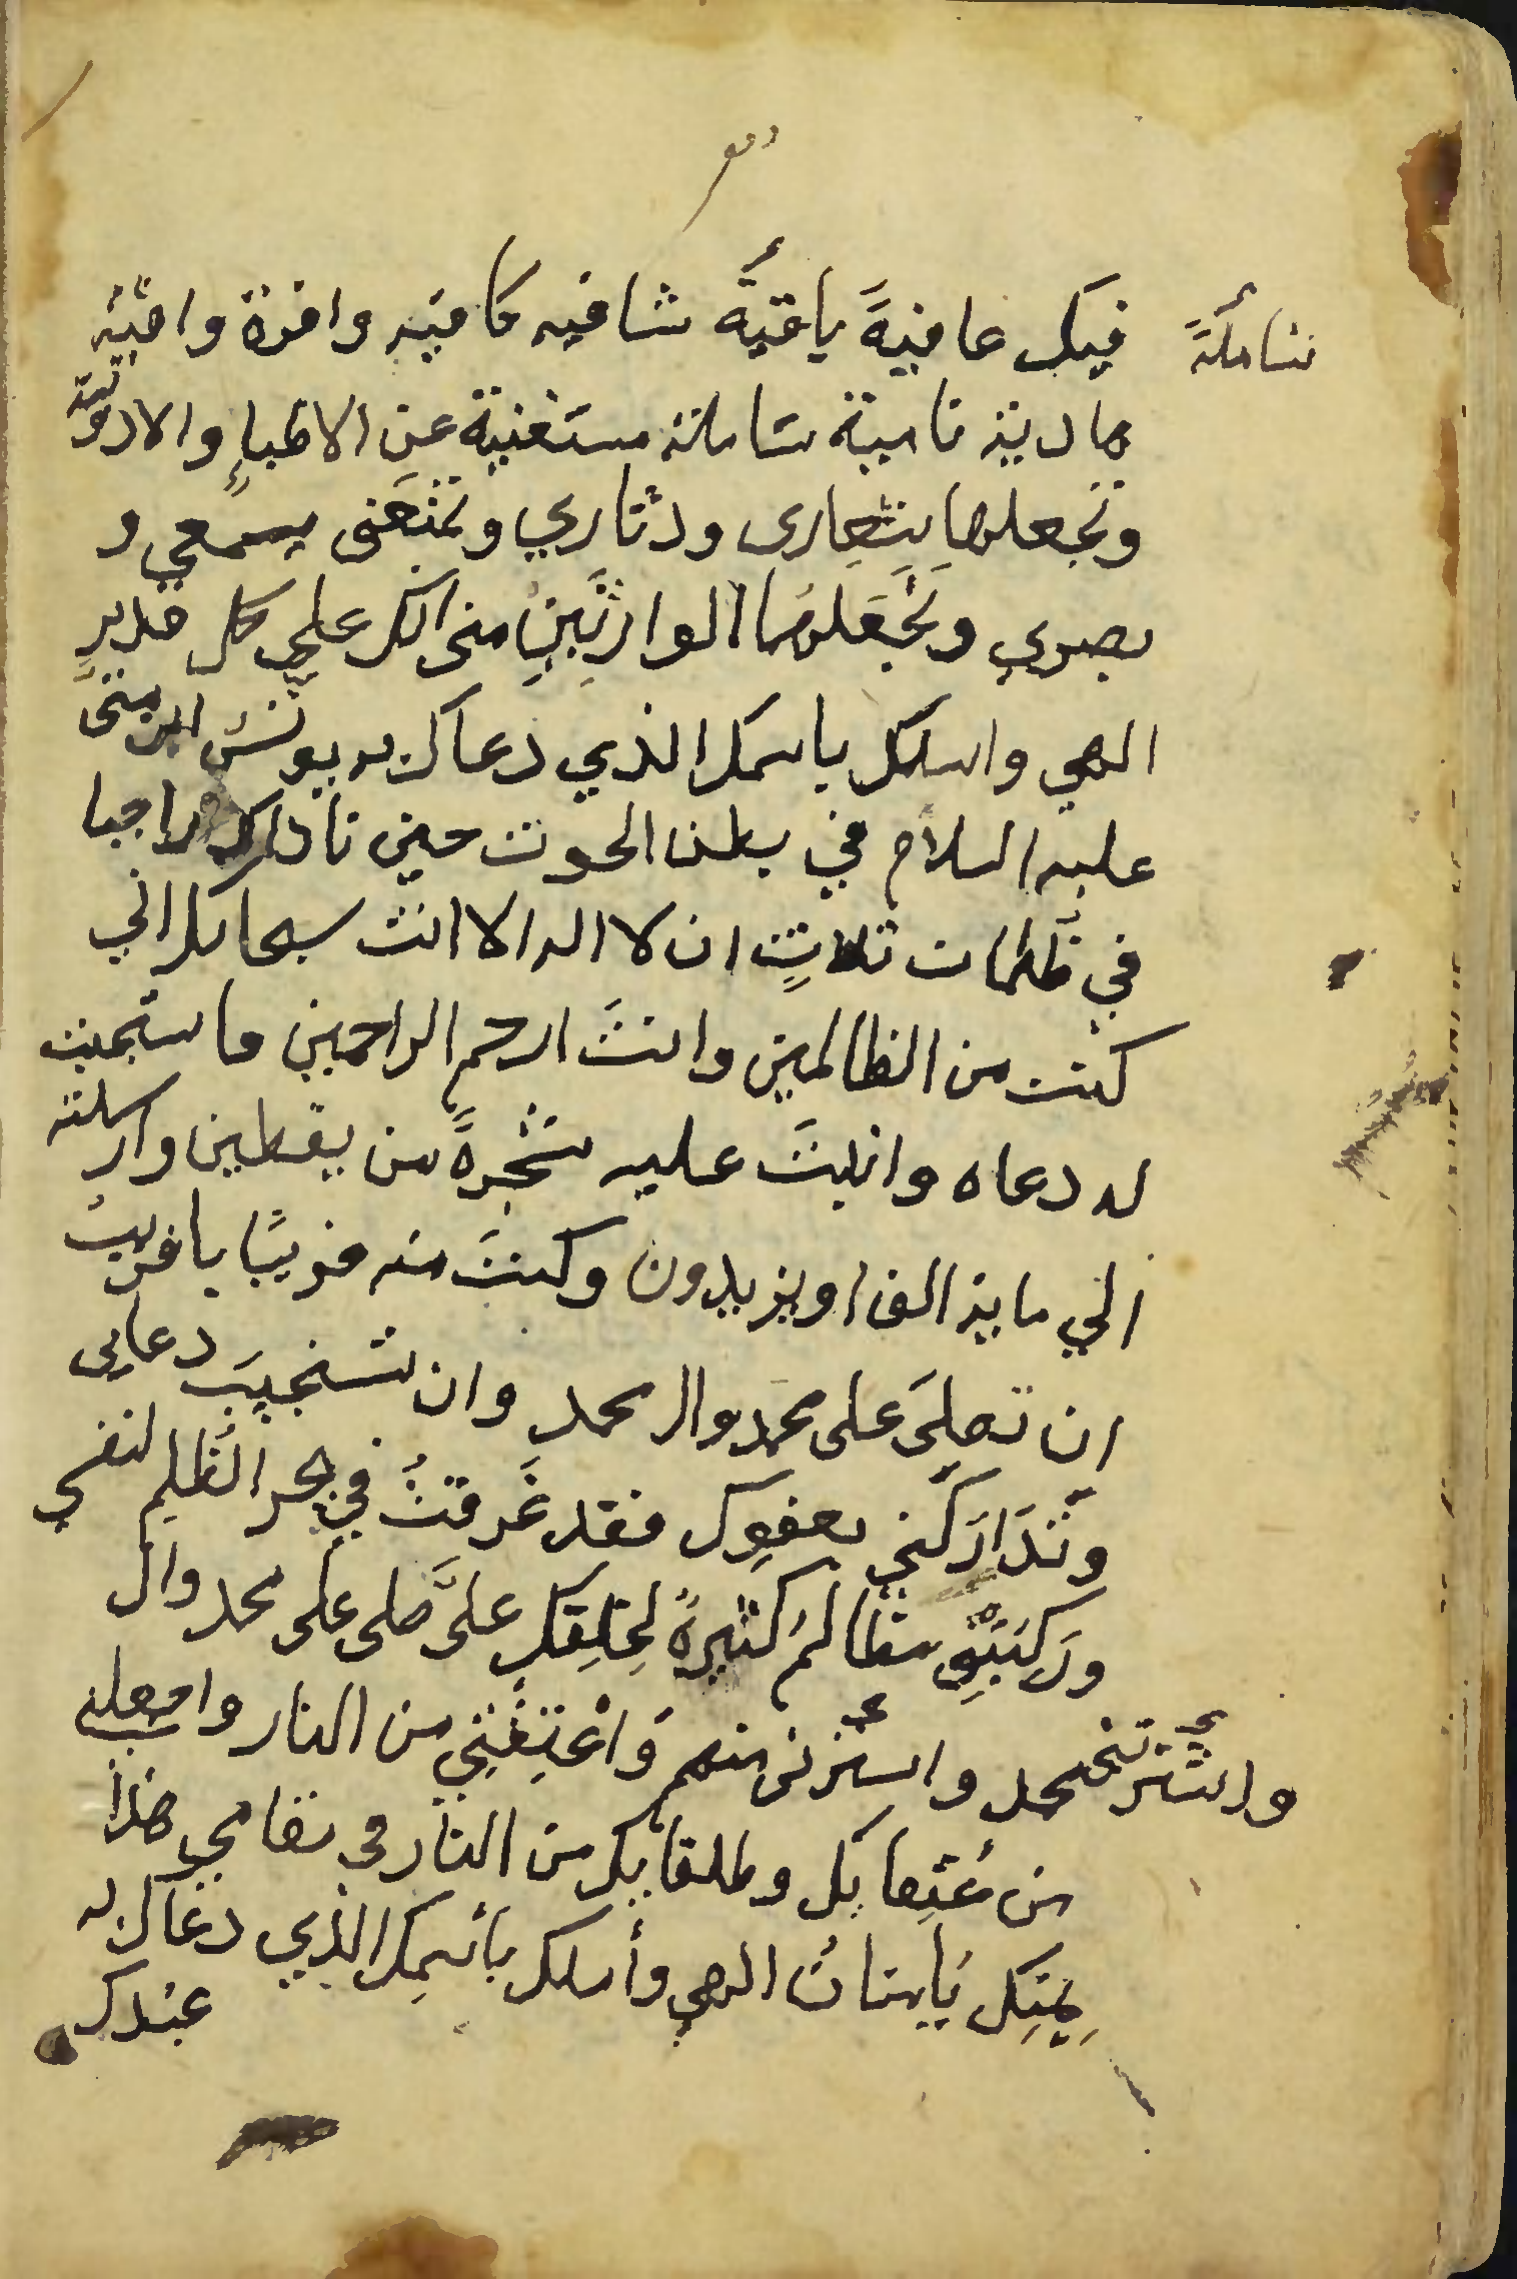 شاملةً
فيك عافيةً باقيةً شافيه كافيه وافرة وافيه
هادية نامية شاملة مستغنية عن الاطباءِ والادوية
وتجعلها شِعارى ودثاري وتمتعنى بسمعي و
بصري وتجعَلهما الوارثَينِ منى انك على كل قديرٍ
الهي واسلك باسمك الذي دعاك به يونُسُ ابن متىَّ
عليه السلام في بطن الحوت حين ناداك راجيا
في ظلمات ثلاثٍ ان لا اله الا انت سبحانك اني
كنت من الظالمين وانتَ ارحم الراحمين فاستجبت
له دعاه وانبتَ عليه شجرةً من يقطين وارسلته
الي ماية الف او يزيدون وكنتَ منه قريبًا يا قريب
ان تصلىَ على محمد وال محمد وان تستجيبَ دعايى
وتَدَارَكني بعفوِك فقد غَرقتُ في بحر الظلمِ لنفسي
ورَكِبَتنِي مظالمُ كثيرةً لخلقِك علىَّ صلى على محمد وال
محمد واسترنى منهم وَاعْتِقْنِي من النار واجعلنى
واسترني
من عُتقايِك وطلقايِك من النار في مقامي هذا
بِمَنِّك يا منانُ الهي وأسلك باسْمِك الذي دعاك به
عبدك